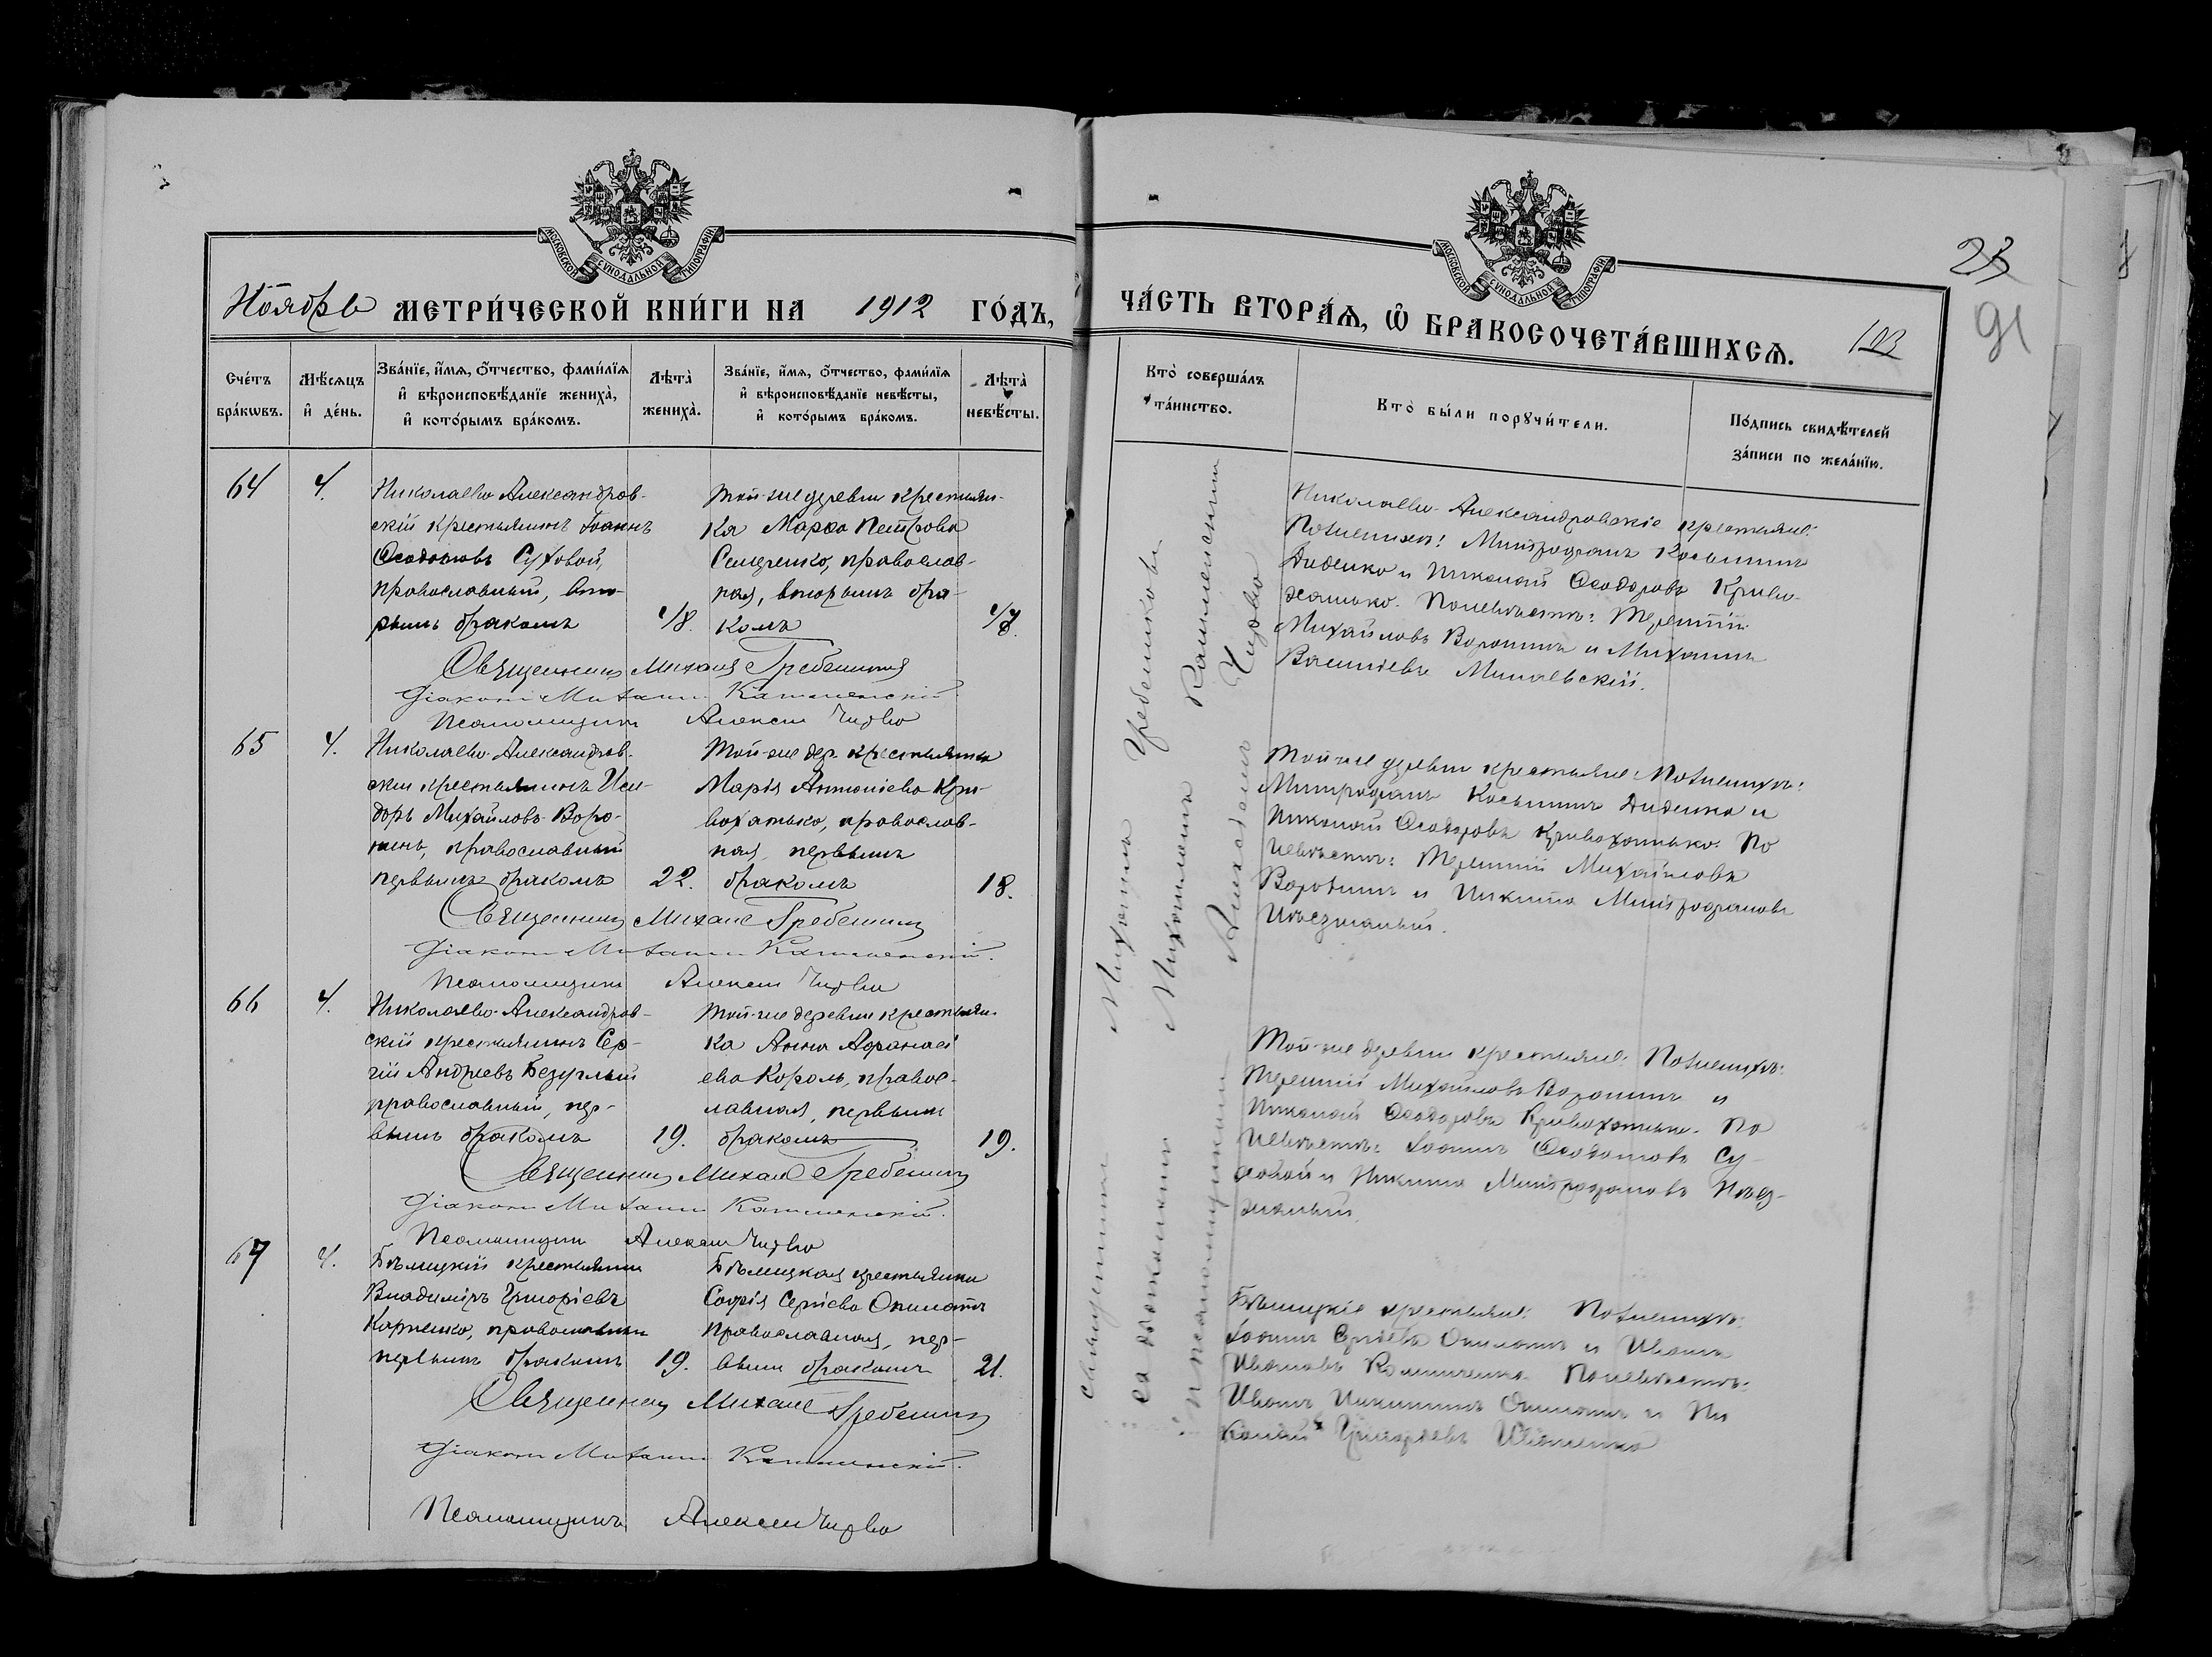 МОСКОВСКОЙ СѴНОДАЛЬНОЙ ТИПОГРАФІИ
Ноябрь МЕТРИ́ЧЕСКОЙ КНИ́ГИ НА 1912 ГО́ДЪ,
Сче́тъ бра́кѡвъ.
Мѣ́сяцъ и҆ де́нь.
Зва́нїе, и҆́мѧ, ѻ҆́тчество, фами́лїѧ
и҆ вѣроисповѣ́данїе женихà,
и҆ кото́рымъ бра́комъ.
Лѣтà женихà.
Зва́нїе, и҆́мѧ, ѻ҆́тчество, фами́лїѧ
и҆ вѣроисповѣ́данїе невѣ́сты,
и҆ кото́рымъ бра́комъ.
Лѣтà невѣ́сты.
64 4.
Николаево-Александров-
скій крестьянинъ Іоаннъ
Ѳеодотовъ Суховой,
православный, вто-
рымъ бракомъ
той-же деревни крестьян-
ка Марѳа Петрова
православ-
ная, вторымъ бра-
комъ
Священникъ Михаилъ Гребенниковъ
Діаконъ Михаилъ
Псаломщикъ Алексей Чирво
65 4.
Николаево-Александров-
скій крестьянинъ Иси-
доръ Михайловъ Воро-
нинъ, православный
первымъ бракомъ 22.
Той-же дер. крестьянка
Марія Антоніева Кри-
вохатько, православ-
ная, первымъ
бракомъ 18.
Священникъ Михаилъ Гребенниковъ
Діаконъ Михаилъ
Псаломщикъ Алексей Чирво
66 4.
Николаево-Александров-
скій крестьянинъ Сер-
гій Андреевъ Безуглый
православный, пер-
вымъ бракомъ 19.
той-же деревни крестьян-
ка Анна Аѳанасі
ева Король, правос-
лавная, первымъ
бракомъ 19.
Священникъ Михаилъ Гребенниковъ
Діаконъ Михаилъ
Псаломщикъ Алексей Чирво
67 4.
крестьянинъ
Владиміръ Григоріевъ
Карпенко, православный
первымъ бракомъ 19.
крестьянка
Софія Сергіева Опилатъ
Православная, пер-
вымъ бракомъ 21.
Священникъ Михаилъ Гребенниковъ
Діаконъ Михаилъ
Псаломщикъ Алексей Чирво
МОСКОВСКОЙ СѴНОДАЛЬНОЙ ТИПОГРАФІИ
ЧА́СТЬ ВТОРА́Ѧ, Ѽ БРАКОСОЧЕТА́ВШИХСѦ.
91
Кто̀ соверша́лъ та́инство.
Кто̀ бы́ли порꙋчи́тели.
По́дпись свидѣ́телей
за́писи по жела́нїю.
священникъ Михаилъ Гребенниковъ
съ діакономъ Михаиломъ
и псаломщикомъ Алексѣемъ Чирво
Николаево-Александровскіе крестьяне:
По женихѣ: Митрофанъ Косьминъ
Диденко и Николай Ѳеодоровъ Криво-
хатько. По невѣстѣ: Терентій
Михайловъ Воронинъ и Михаилъ
Васильевъ
Той-же деревни крестьяне: По женихѣ:
Митрофанъ Косьминъ Диденко и
Николай Ѳеодоровъ Кривохатько. По
невѣстѣ: Терентій Михайловъ
Воронинъ и Никита Митрофановъ
Той-же деревни крестьяне: По женихѣ:
Терентій Михайловъ Воронинъ и
Николай Ѳеодоровъ Кривохатько. По
невѣстѣ: Іоаннъ Ѳеодотовъ Су-
ховой и Никита Митрофановъ
крестьяне: По женихѣ:
Іоаннъ Сергіевъ Опилатъ и Иванъ
Ивановъ По невѣстѣ:
Иванъ Никитинъ Опилатъ и Ни
колай Григорьевъ